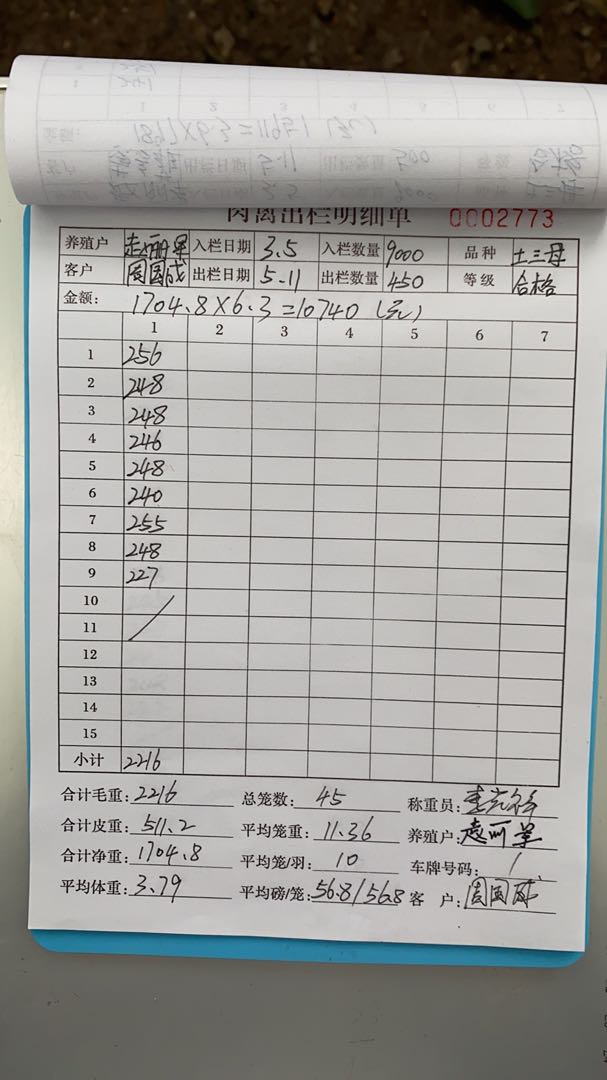 肉禽出栏明细单 0002773
养殖户 赵丽萍 入栏日期 3.5 入栏数量 9000 品种 土三母
客户 周国成 出栏日期 5.11 出栏数量 450 等级 合格
金额: 1704.8×6.3=10740(元)
1 2 3 4 5 6 7
1 256
2 248
3 248
4 246
5 248
6 240
7 255
8 248
9 227
10
11
12
13
14
15
小计 2216
合计毛重: 2216 总笼数: 45 称重员:
合计皮重: 511.2 平均笼重: 11.36 养殖户: 赵丽萍
合计净重: 1704.8 平均笼/羽: 10 车牌号码: /
平均体重: 3.79 平均磅/笼: 56.8/56.8 客 户: 周国成